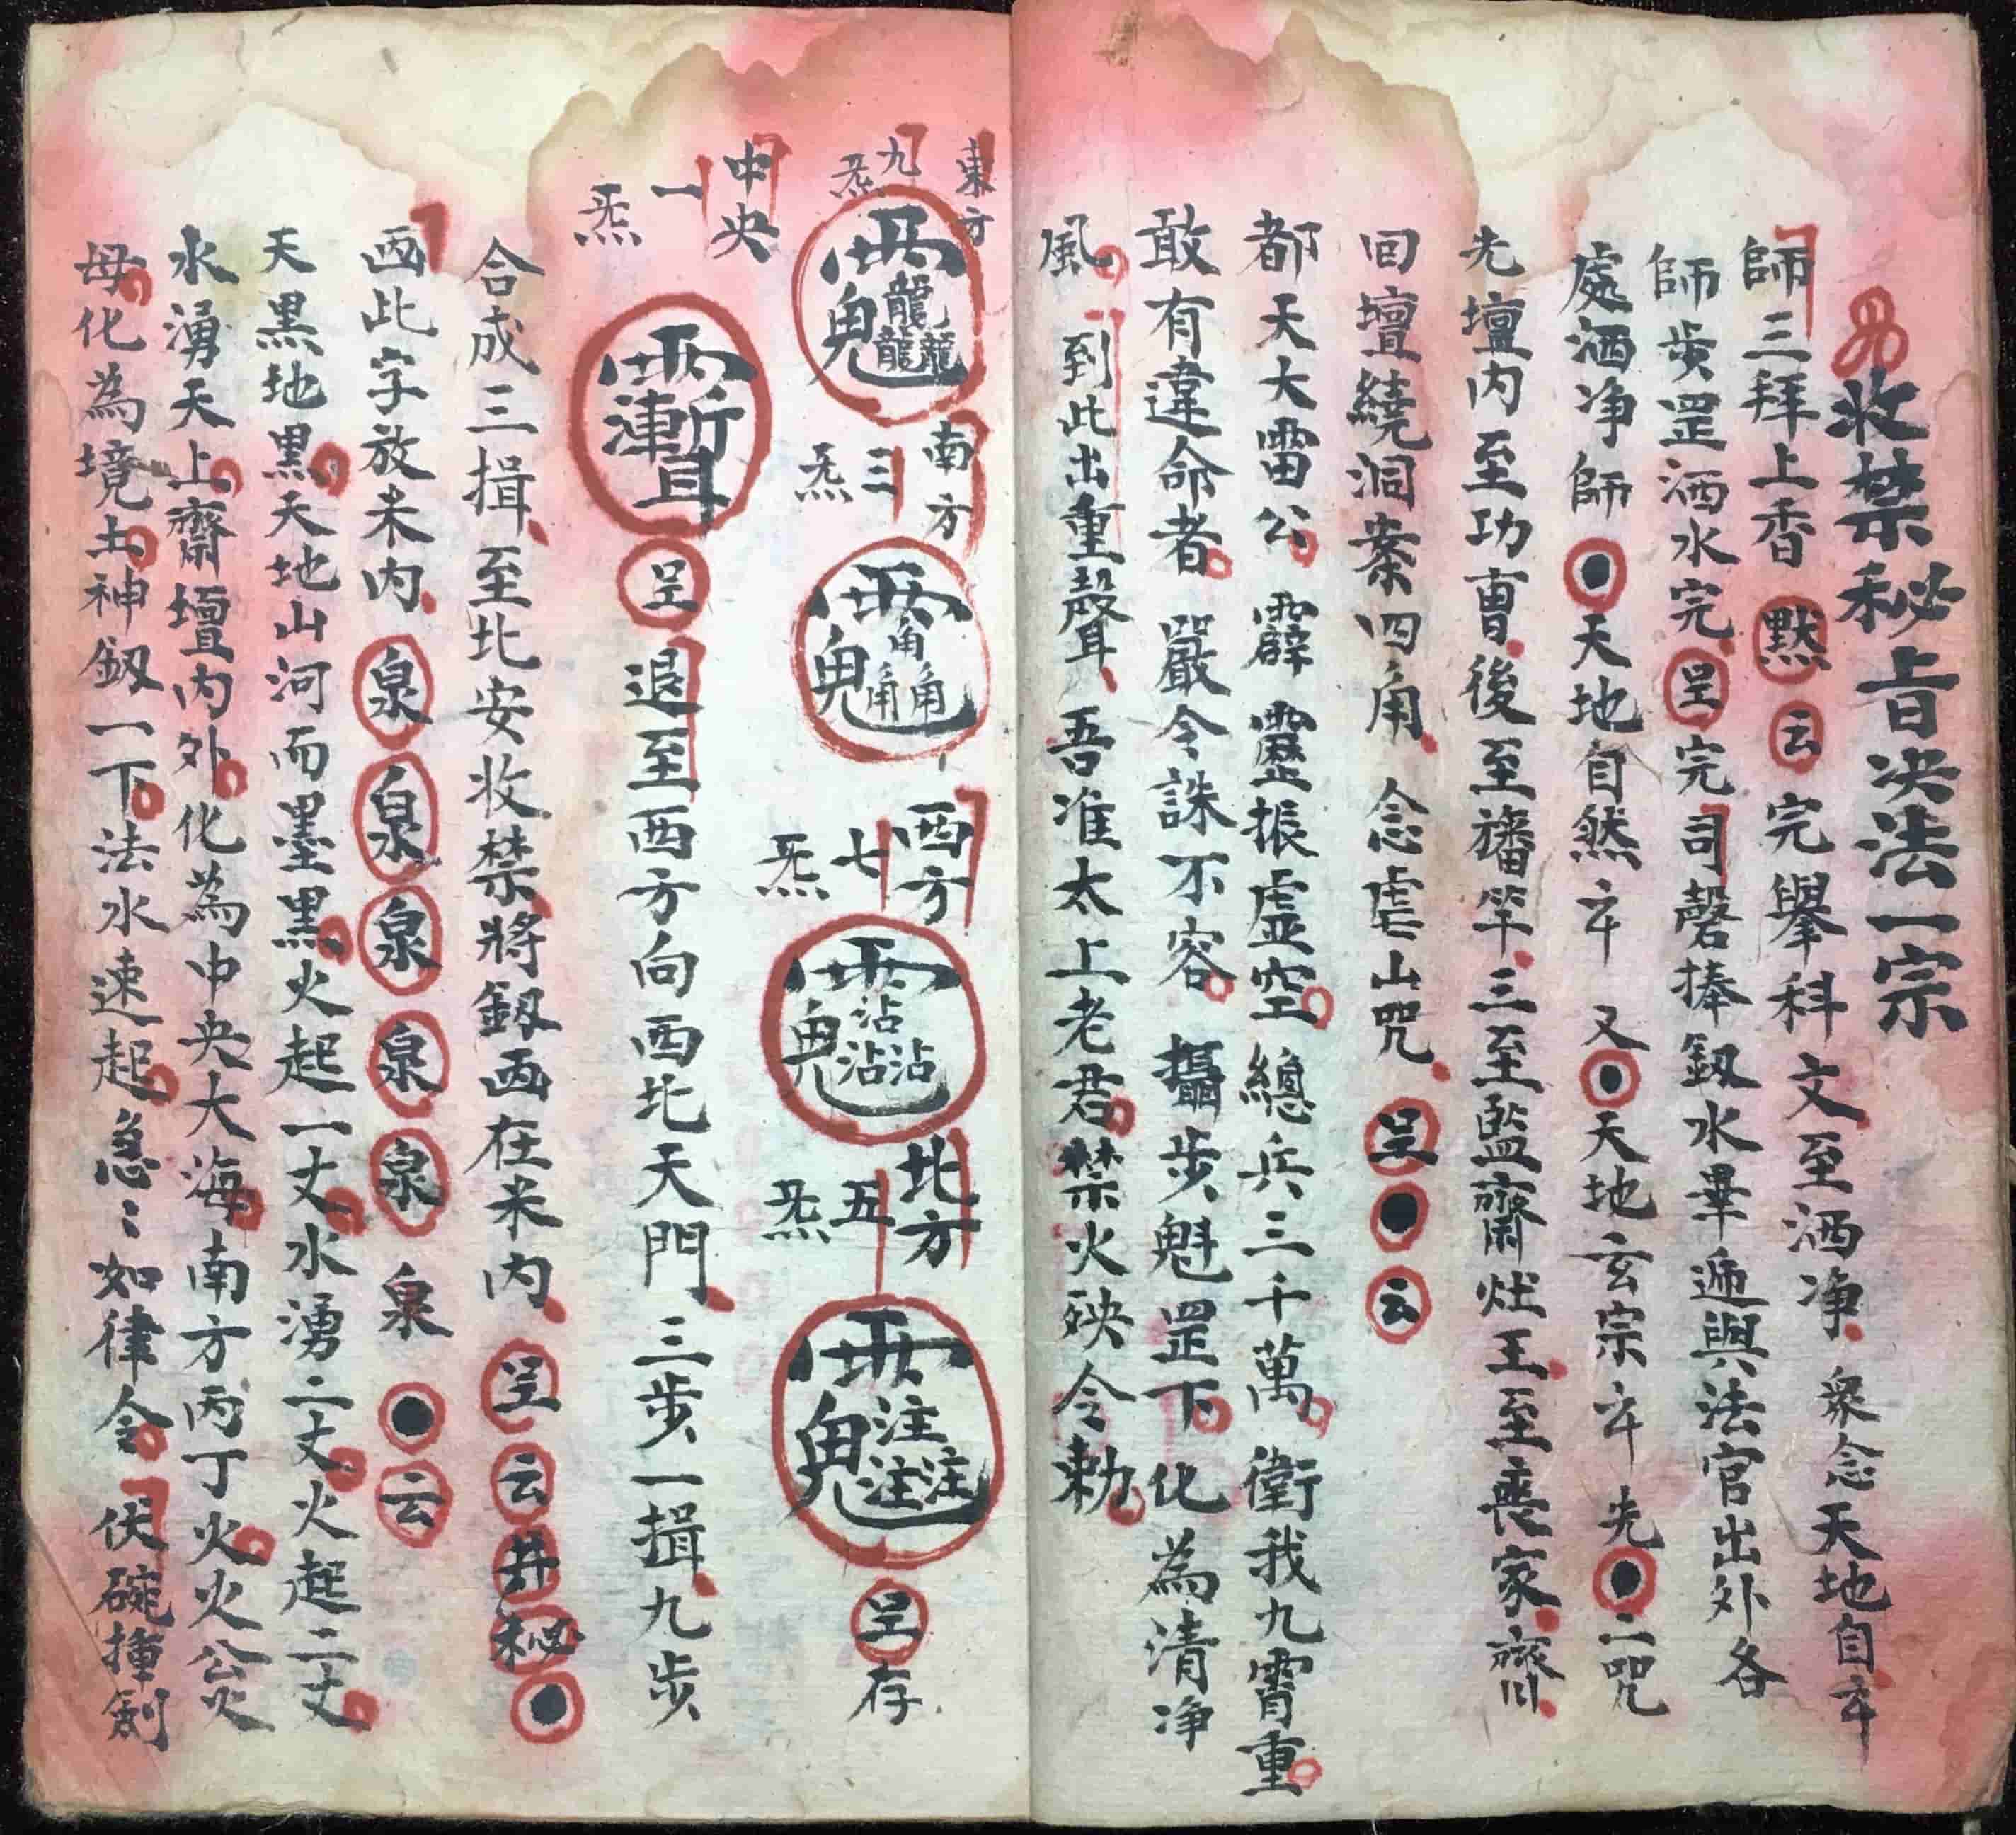 收禁秘旨決法一宗
師三拜上香默云完舉科文至洒净衆念天地自卆
師步罡洒水完呈完司磬捧釼水畢遞與法官出外各
處洒净師天地自然卆又天地玄宗卆先二咒
先壇内至功曹後至旛竿三至監齋灶王至喪家齊
回壇繞洞案四角念虐山咒呈云
都天大雷公霹靂振虚空總兵三千萬衛我九霄重
敢有違命者嚴令誅不容攝步魁罡下化為清净
風到此出重聲吾准太上老君禁火殃令勑
東方
九炁
南方
三炁
西方
七炁
北方
五炁
呈存
中央
一炁
呈退至西方向西北天門三步一揖九步
合成三揖至北安收禁將釼西在米内呈云井秘
西此字放未内泉泉泉泉泉泉云
天黑地黑天地山河而墨黑火起一丈水湧二丈火起二丈
水湧天上齋壇内外化為中央大海南方丙丁火火公火
母化為境土神釼一下法水速起急：如律令伏碗揮劍